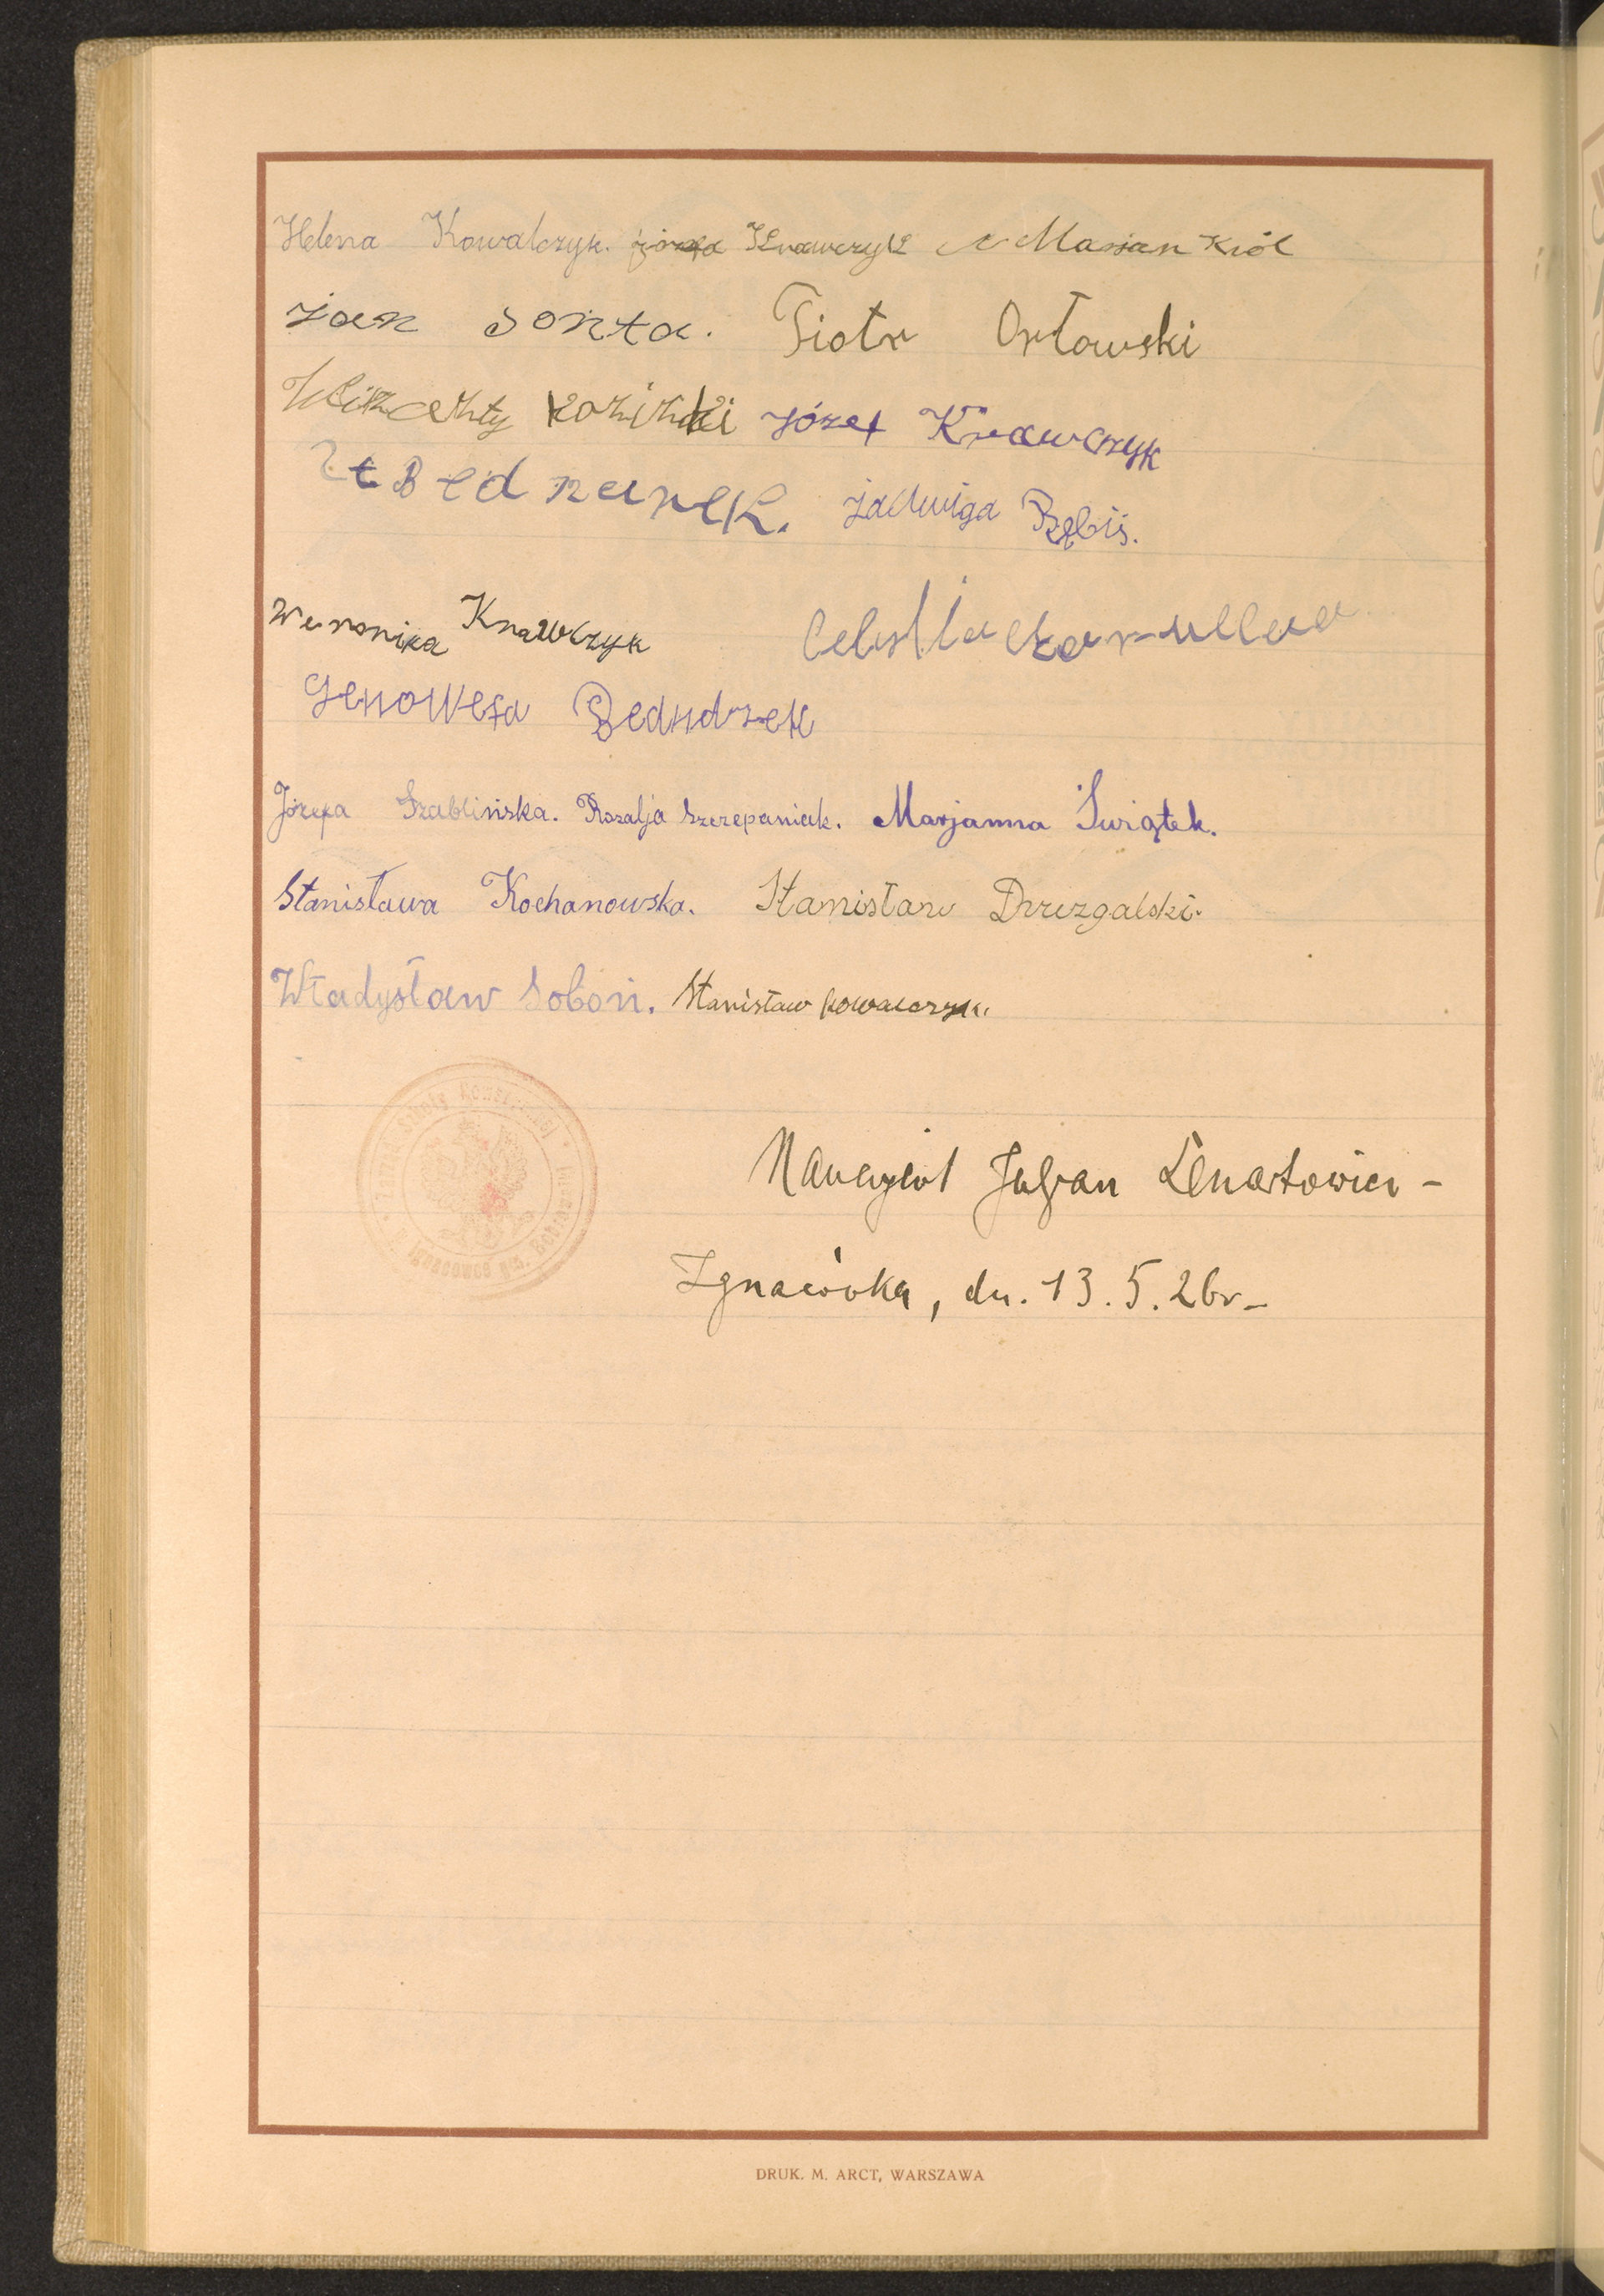 Helena Kowalczyk. Józefa Krawczyk Marian Król
Jan Sońta. Piotr Orłowski
Wincenty Kozinki Józef Krawczyk
Bednarek. Jadwiga Rębiś.
Weronika Krawczyk
Genowefa Bednarek
Józefa Szablińska. Rozalja Szczepaniak. Marjanna Świątek.
Stanisława Kochanowska. Stanisław Drzezgalski.
Władysław Soboń. Stanisław Kowalczyk.
Nauczyciel Juljan Lenartowicz -
Ignaców­ka, dn. 13.5.26r -
DRUK. M. ARCT, WARSZAWA